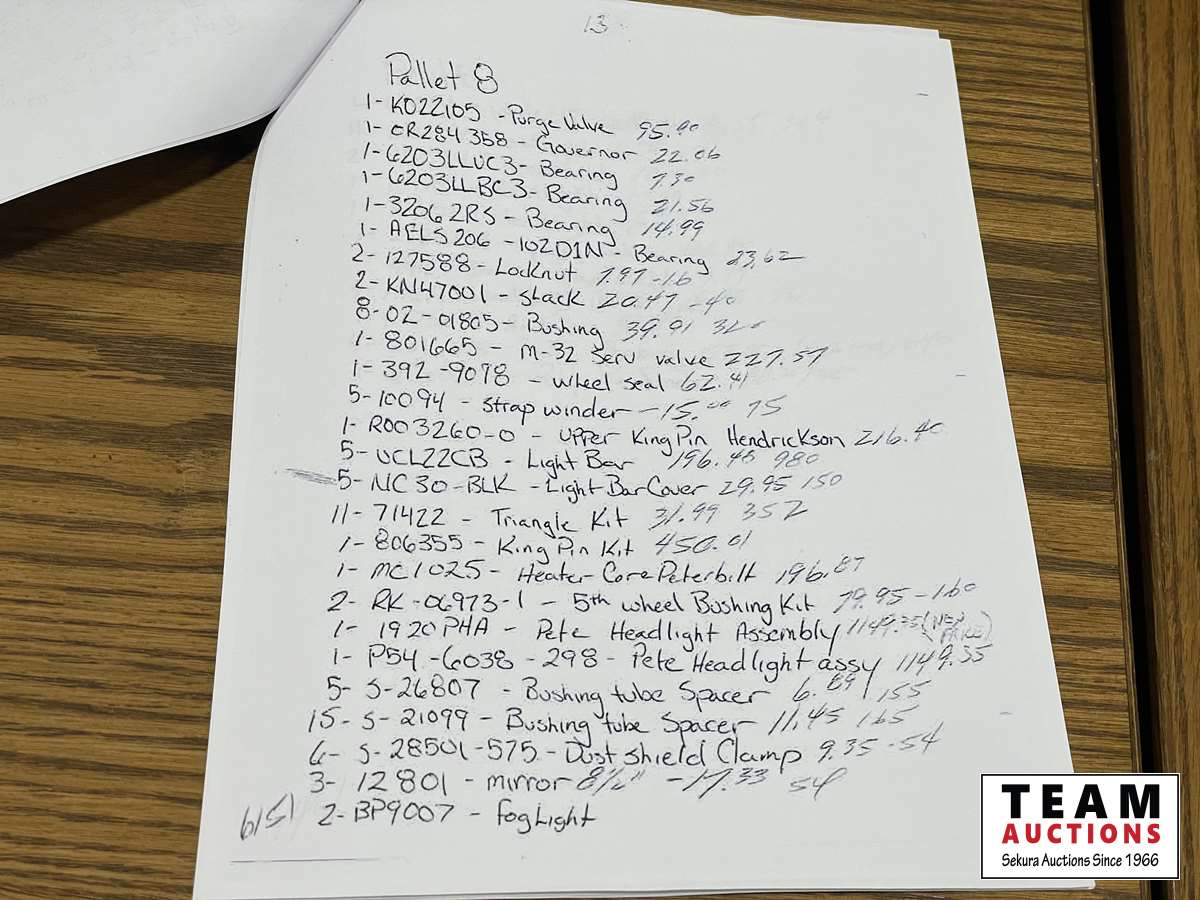 13
Pallet 8
1- KO22105 - Purge Valve 95.90
1- OR284358 - Governor 22.06
1- 6203LLUC3 - Bearing 7.30
1- 6203LLBC3 - Bearing 21.56
1- 3206 2RS - Bearing 14.99
1- AELS206 - 102D1N - Bearing 23.62
2- 127588 - Locknut 7.97 - 16
2- KN47001 - slack 20.47 - 40
8- 02-01805 - Bushing 39.91 320
1- 801665 - M-32 Serv valve 227.57
1- 392-9078 - wheel seal 62.41
5- 10094 - strap winder - 15.00 75
1- R003260-0 - upper King Pin Hendrickson 216.40
5- UCL22CB - Light Bar 196.48 980
5- NC30-BLK - Light Bar Cover 29.95 150
11- 71422 - Triangle Kit 31.99 352
1- 806355 - King Pin Kit 450.01
1- MC1025 - Heater Core Peterbilt 196.87
2- RK-06973-1 - 5th wheel Bushing Kit 79.95 - 160
1- 1920PHA - Pete Headlight Assembly 1149.35 (NEW PRICE)
1- P54-6038-298 - Pete Headlight assy 1149.35
5- S-26807 - Bushing tube Spacer 6.89 155
15- S-21099 - Bushing tube Spacer 11.45 165
6- S-28501-575 - Dust shield Clamp 9.35 - 54
3- 12801 - mirror 8½" - 17.33 54
6151 2- BP9007 - fog Light
TEAM
AUCTIONS
Sekura Auctions Since 1966